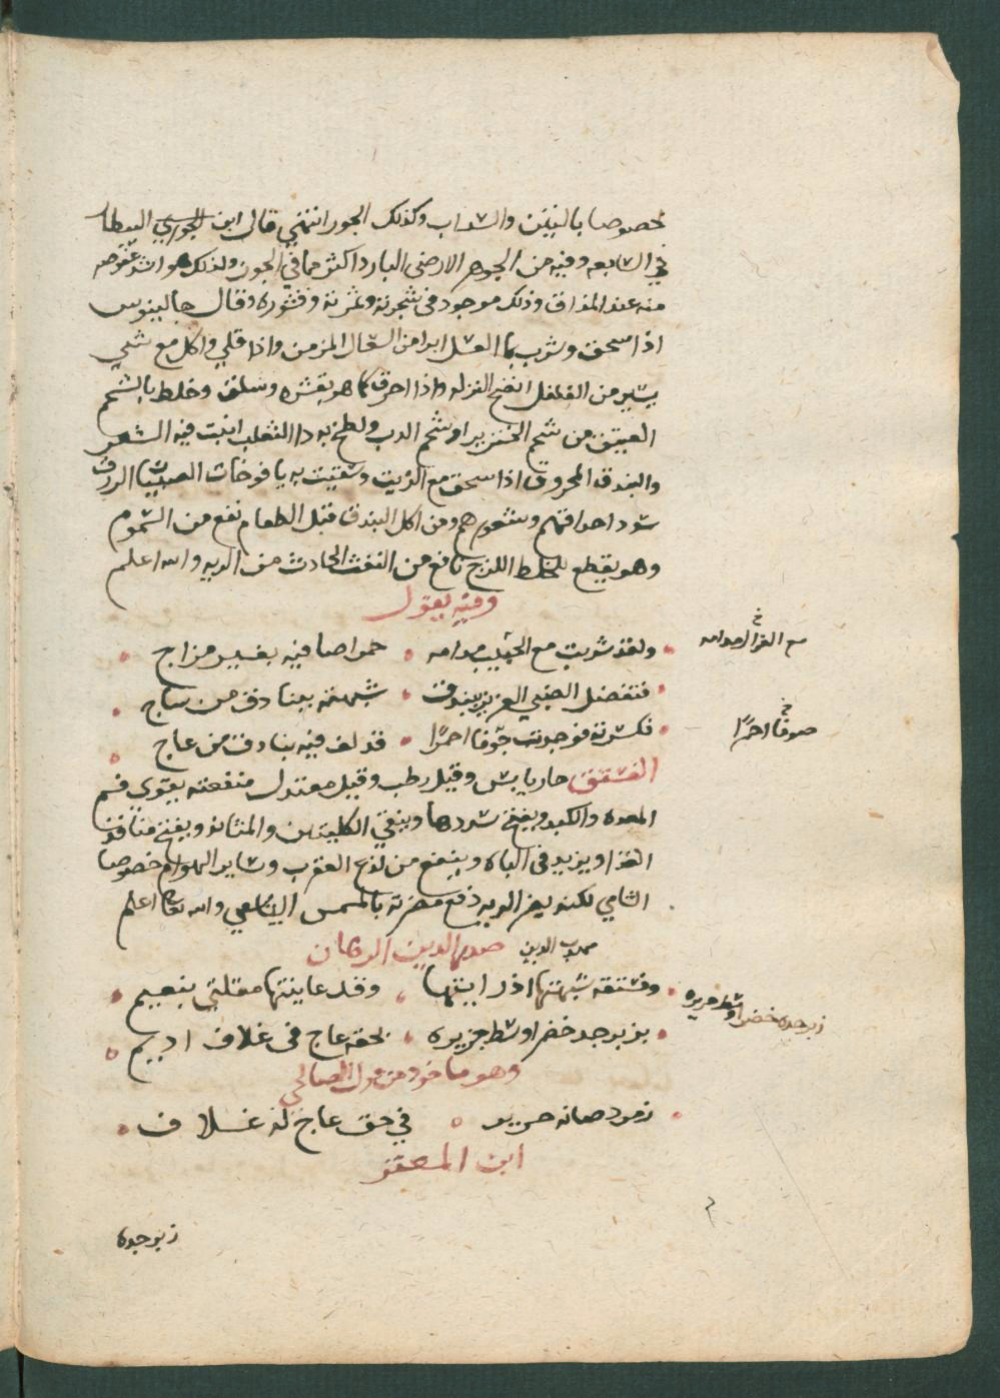 خصوصا بالتين والسداب وكذلك الجوز انتهى قال ابن البيطار
في السابعه وفيه من الجوهر الارضى البارد اكثر مما في الجوز ولذلك هو اشد عفوصه
منه عند المذاق وذلك موجود فى شجرته وثمرته وقشوره وقال جالينوس
اذا سحق وشرب بما العسل ابرا من السعال المزمن واذا قلي واكل مع شي
يسير من الفلفل انضج النزله واذا احرق كما هو بقشره وسحق وخلط بالشحم
العتيق من شحم الخنزير او شحم الدب ولطخ به دا الثعلب انبت فيه الشعر
والبندق المحروق اذا سحق مع الزيت وسقيت به يافوخات الصبيان الزرق
سود احداقهم وشعورهم ومن اكل البندق قبل الطعام نفع من السموم
وهو يقطع الخلط اللزج نافع من النفث الحادث من الريه والله اعلم
وفيه يقول
ولقد شربت مع الحبيب مدامه • حمرا صافيه بغير مزاج
مع الغزال مدامه
فتفضل الظبي العزيز ببندق • شبهته ببنادق من ساج
فكسرته فوجدت جوفا احمرا • قد لف فيه بنادق من عاج
صوفا احمرا
الفستق حار يابس وقيل رطب وقيل معتدل منفعته يقوى فم
المعده والكبد ويفتح سددها وينقي الكليتين والمثانه ويفتح منافذ
الغذا ويزيد فى الباه وينفع من لذع العقرب وساير الهوام خصوصا
الشامي لكنه يضر الريه دفع مضرته بالمشمس والله تعالى اعلم
الدين
وفستقه شبهتها اذ رايتها • وقد عاينتها مقلتي بنعيم
زبرجده خضرا وسط حريره
بزبرجد خضرا وسط حريره • بحقه عاج فى غلاف اديم
وهو ماخوذ من قول الصالحي
زمرد صانه حرير • في حق عاج له غلاف
ابن المعتز
زبرجده